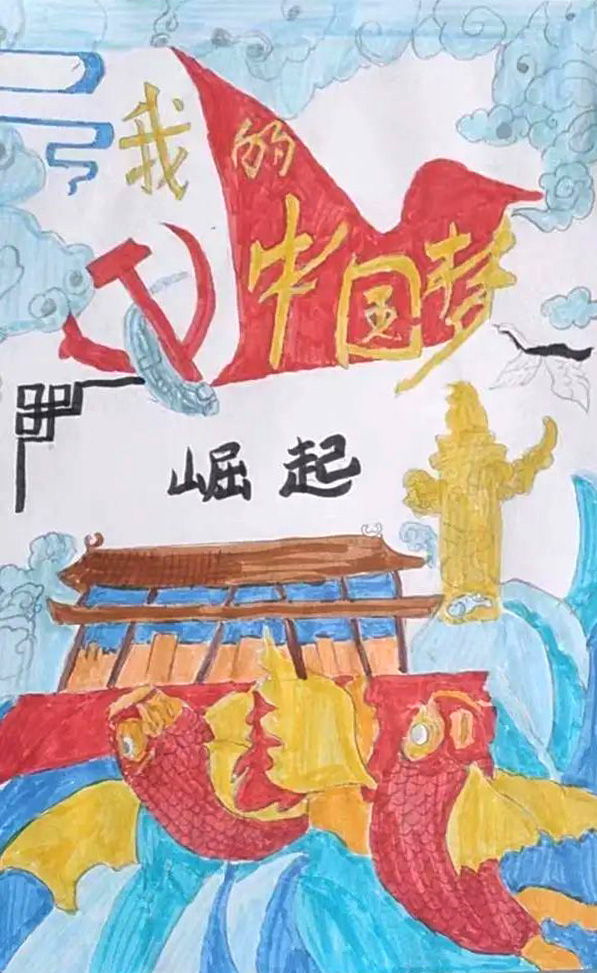 我的
中国梦
崛起